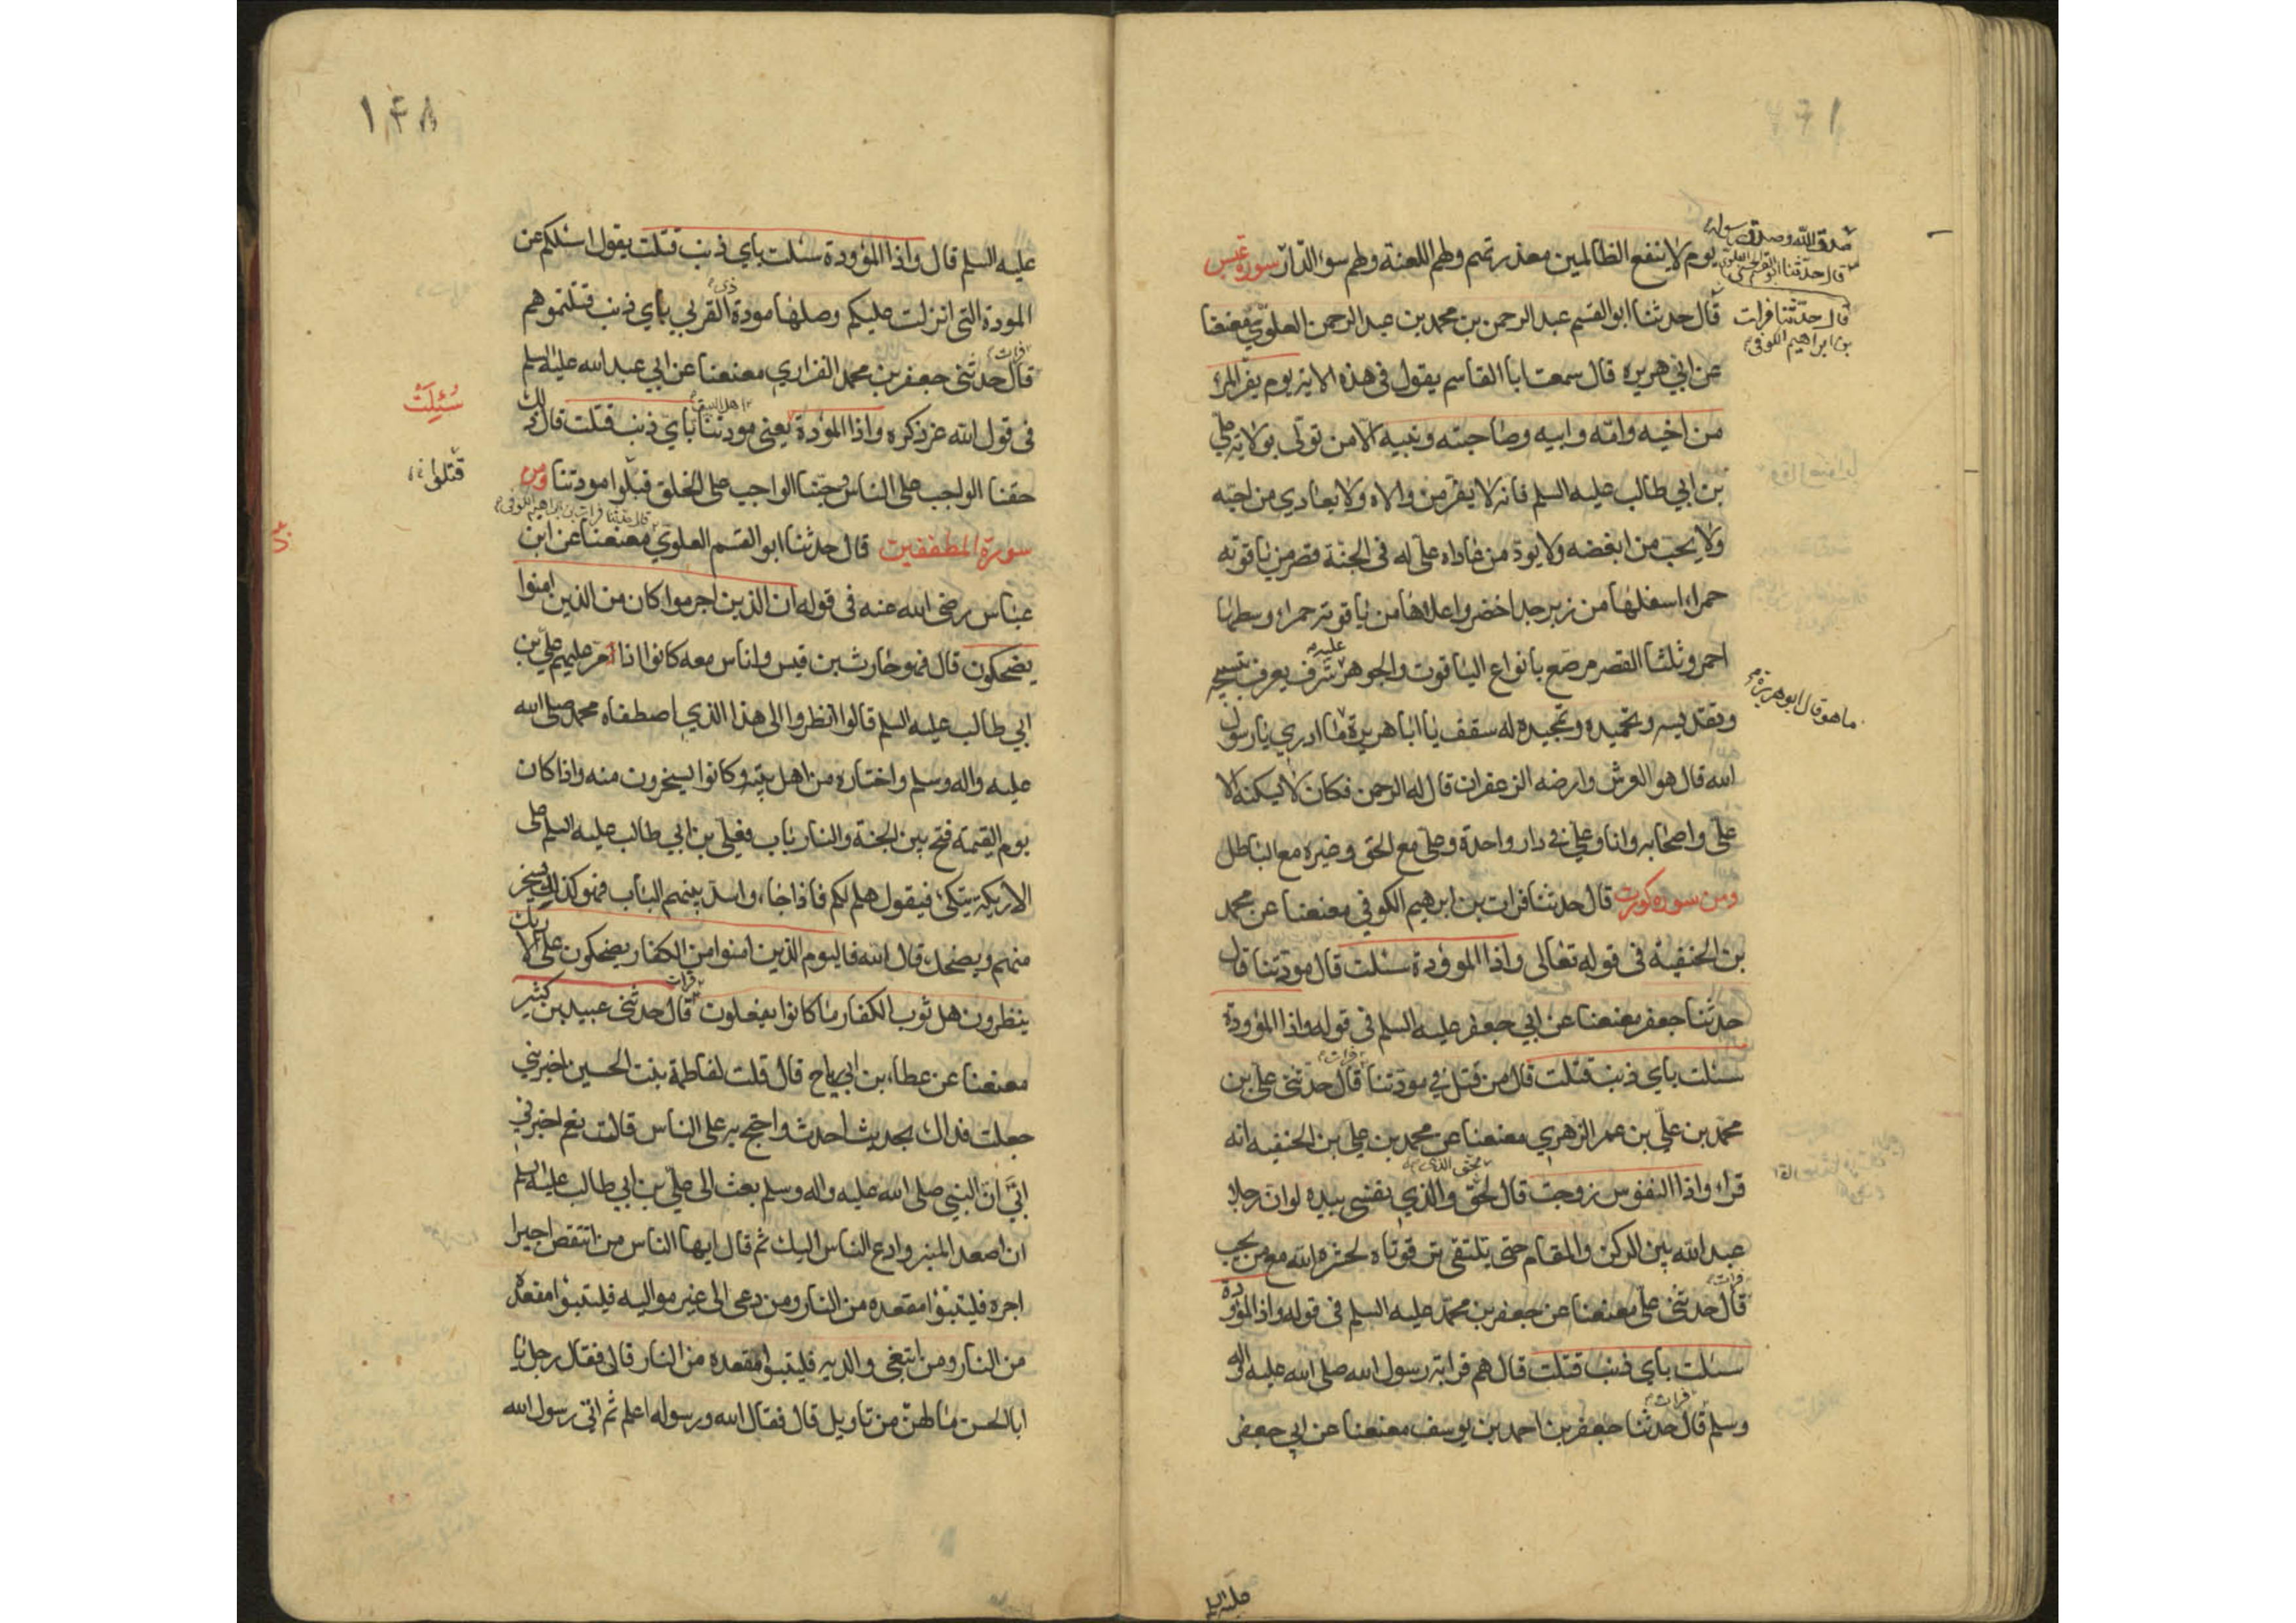 يوم لا ينفع الظالمين معذرتهم ولهم اللعنة ولهم سوء الدار سورة عبس
صدق الله وصدق رسوله
قال حدثنا ابو القسم الحسنى العلوي
قال حدثنا فرات
بن ابراهيم الكوفي
قال حدثنا ابو القسم عبد الرحمن بن محمد بن عبد الرحمن العلوي معنعنا
عن ابي هريره قال سمعت ابا القاسم يقول في هذه الاية يوم يفر المرء
من اخيه وامه وابيه وصاحبته وبنيه الا من تولى بولاية علي
بن ابي طالب عليه السلم فانه لا يفر من والاه ولا يعادي من احبه
ولا يحب من ابغضه ولا يود من عاداه علي له في الجنة قصر من ياقوته
حمراء اسفلها من زبرجد اخضر واعلاها من ياقوته حمراء وسطها
احمر وثلثا القصر مرصع بانواع الياقوت والجوهر عليه شرف يعرف بتسبيحه
وتقديسه وتحميده وتمجيده له سقف يا ابا هريرة ما ادري يا رسول
ما هو قال ابو هريرة
الله قال هو العرش وارضه الزعفران قال له الرحمن فكان لا يسكنه الا
علي واصحابه وانا وعلي في دار واحدة وعلي مع الحق وغيره مع الباطل
ومن سوره كورت قال حدثنا فرات بن ابرهيم الكوفي معنعنا عن محمد
بن الحنفية في قوله تعالى واذا الموؤدة سئلت قال مودتنا قال
حدثنا جعفر معنعنا عن ابي جعفر عليه السلم في قوله واذا الموؤدة
سئلت باي ذنب قتلت قال من قتل في مودتنا قال فرات حدثني علي بن
محمد بن علي بن عمر الزهري معنعنا عن محمد بن علي بن الحنفيه انه
قراء واذا النفوس زوجت قال لحق والذي نفسي بيده لو ان رجلا
بحق الذي
عبد الله بين الركن والمقام حتى يلتقي ترقوتاه لحشره الله مع من يحب
قال فرات حدثني علي معنعنا عن جعفر بن محمد عليه السلم في قوله واذا الموؤدة
سئلت باي ذنب قتلت قال هم قرابة رسول الله صلى الله عليه واله
وسلم قال فرات حدثنا جعفر بن احمد بن يوسف معنعنا عن ابي جعفر
عليه السلم
١٤٨
عليه السلم قال واذا الموؤدة سئلت باي ذنب قتلت يقول اسئلكم عن
المودة التي انزلت عليكم وصلها مودة ذي القربى باي ذنب قتلتموهم
قال فرات حدثني جعفر بن محمد الفزاري معنعنا عن ابي عبد الله عليه السلم
في قول الله عز ذكره واذا الموؤدة سُئِلَتْ يعني مودتنا اهل البيت باي ذنب قتلت قال ذلك
حقنا الواجب على الناس وحبنا الواجب على الخلق قتلوا مودتنا ومن
قتلوا
سورة المطففين قال حدثنا ابو القسم العلوي معنعنا عن ابن
قال حدثنا فرات بن ابراهيم الكوفي
عباس رضي الله عنه في قوله ان الذين اجرموا كان من الذين امنوا
يضحكون قال فهو حارث بن قيس واناس معه كانوا اذا مر عليهم علي بن
ابي طالب عليه السلم قالوا انظروا الى هذا الذي اصطفاه محمد صلى الله
عليه واله وسلم واختاره من اهل بيته وكانوا يسخرون منه واذا كان
يوم القيمة فتح بين الجنة والنار باب فعلي بن ابي طالب عليه السلم على
الاريكة يتكئ فيقول هلم لكم فاذا جاء واسد بينهم الباب فهو كذلك يسخر
منهم ويضحك قال الله فاليوم الذين امنوا من الكفار يضحكون على الارائك
ينظرون هل ثوب الكفار ما كانوا يفعلون قال فرات حدثني عبيد بن كثير
معنعنا عن عطاء بن ابي رباح قال قلت لفاطمة بنت الحسين اخبرني
جعلت فداك بحديث احدث واحتج به على الناس قالت نعم اخبرني
ابي ان النبي صلى الله عليه واله وسلم بعث الى علي بن ابي طالب عليه السلم
ان اصعد المنبر وادع الناس اليك ثم قال ايها الناس من انتقص اجيرا
اجره فليتبؤا مقعده من النار ومن دعى الى غير مواليه فليتبؤا مقعده
من النار ومن انتفى والديه فليتبؤا مقعده من النار قال فقال رجل يا
ابا الحسن ما لهن من تاويل قال فقال الله ورسوله اعلم ثم اتى رسول الله